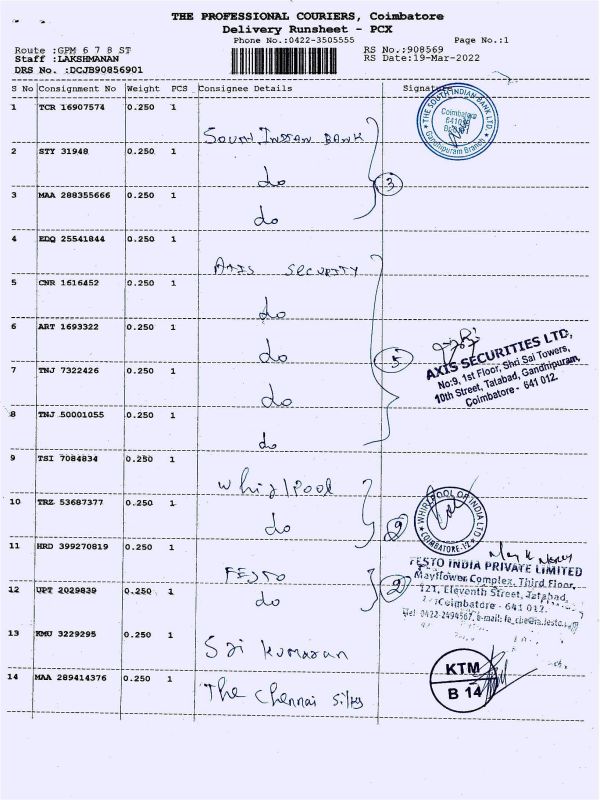 THE PROFESSIONAL COURIERS, Coimbatore
Delivery Runsheet - PCX
Phone No.:0422-3505555 Page No.:1
Route :GPM 6 7 8 ST RS No.:908569
Staff :LAKSHMANAN RS Date:19-Mar-2022
DRS No. :DCJB90856901
S No Consignment No Weight PCS Consignee Details Signature
1 TCR 16907574 0.250 1 SOUTH INDIAN BANK
THE SOUTH INDIAN BANK LTD.
Coimbatore
641012
Gandhipuram Branch
2 STY 31948 0.250 1 do
3 MAA 288355666 0.250 1 do
3
4 EDQ 25541844 0.250 1 AXIS SECURITY
5 CNR 1616452 0.250 1 do
6 ART 1693322 0.250 1 do
7 TNJ 7322426 0.250 1 do
8 TNJ 50001055 0.250 1 do
5
AXIS SECURITIES LTD,
No:9, 1st Floor, Shri Sai Towers,
10th Street, Tatabad, Gandhipuram,
Coimbatore - 641 012.
9 TSI 7084834 0.250 1 Whirlpool
10 TRZ 53687377 0.250 1 do
WHIRLPOOL OF INDIA LTD
COIMBATORE-12
11 HRD 399270819 0.250 1 FESTO
12 UPT 2029839 0.250 1 do
2
FESTO INDIA PRIVATE LIMITED
Mayflower Complex, Third Floor,
121, Eleventh Street, Tatabad,
Coimbatore - 641 012.
Tel: 0422-2494567, e-mail:
13 KMU 3229295 0.250 1 Sri kumaran
14 MAA 289414376 0.250 1 The Chennai Silks
KTM
B 14